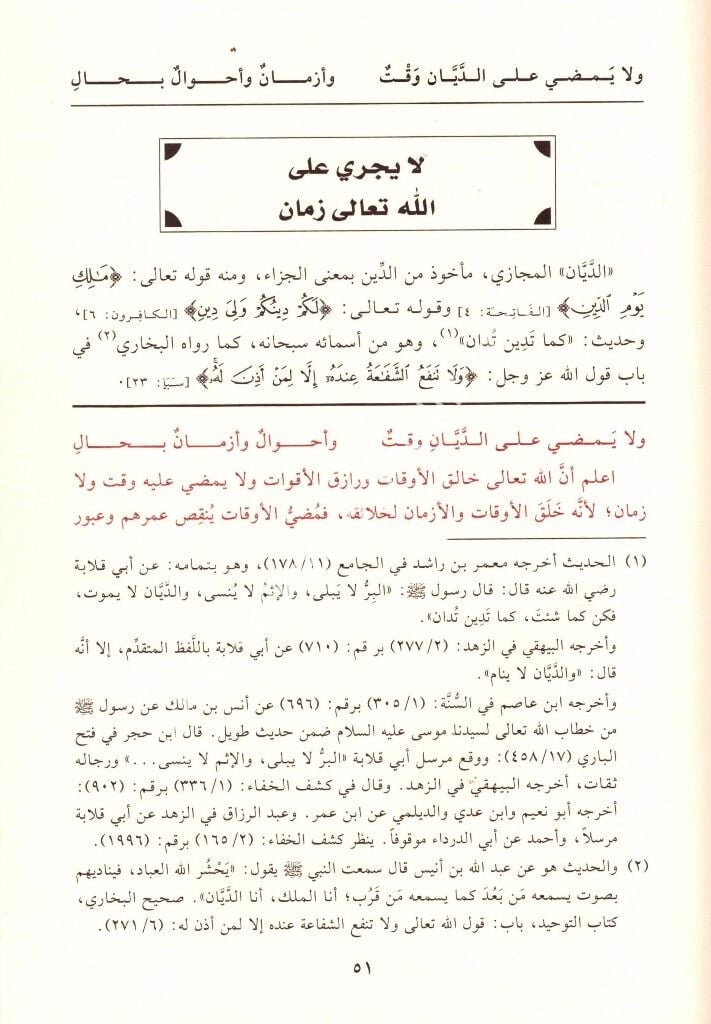 ولا يَـمـضي عـلـى الـدَّيَّـان وَقْـتٌ وأزمـــانٌ وأحـــوالٌ بـــحـــالِ
لا يجري على
الله تعالى زمان
«الدَّيَّان» المجازي، مأخوذ من الدِّين بمعنى الجزاء، ومنه قوله تعالى: ﴿مَـٰلِكِ
يَوْمِ ٱلدِّينِ﴾ [الفَاتِحَة: ٤] وقـولـه تـعـالـى: ﴿لَكُمْ دِينُكُمْ وَلِىَ دِينِ﴾ [الكافِرون: ٦]،
وحديث: «كما تَدِين تُدان»(١)، وهو من أسمائه سبحانه، كما رواه البخاري(٢) في
باب قول الله عز وجل: ﴿وَلَا نَنفَعُ ٱلشَّفَـٰعَةُ عِندَهُۥٓ إِلَّا لِمَنْ أَذِنَ لَهُۥ﴾ [سَبَإ: ٢٣].
ولا يَـمـضي عـلـى الـدَّيَّـانِ وقـتٌ وأحـوالٌ وأزمـانٌ بـــحـــالِ
اعلم أنَّ الله تعالى خالق الأوقات ورازق الأقوات ولا يمضي عليه وقت ولا
زمان؛ لأنَّه خَلَقَ الأوقات والأزمان لخلائقه، فمُضيُّ الأوقات يُنقِص عمرهم وعبور
(١) الحديث أخرجه معمر بن راشد في الجامع (١٧٨/١١)، وهو بتمامه: عن أبي قلابة
رضي الله عنه قال: قال رسول ﷺ: «البِرُّ لا يَبلى، والإثمُ لا يُنسى، والدَّيَّان لا يموت،
فكن كما شئتَ، كما تَدِين تُدان».
وأخرجه البيهقي في الزهد: (٢٧٧/٢) بر قم: (٧١٠) عن أبي قلابة باللَّفظ المتقدِّم، إلا أنَّه
قال: «والدَّيَّان لا ينام».
وأخرجه ابن عاصم في السُّنَّة: (٣٠٥/١) برقم: (٦٩٦) عن أنس بن مالك عن رسول ﷺ
من خطاب الله تعالى لسيدنا موسى عليه السلام ضمن حديث طويل. قال ابن حجر في فتح
الباري (٤٥٨/١٧): ووقع مرسل أبي قلابة «البرُّ لا يبلى، والإثم لا ينسى...» ورجاله
ثقات، أخرجه البيهقي في الزهد. وقال في كشف الخفاء: (٣٣٦/١) برقم: (٩٠٢):
أخرجه أبو نعيم وابن عدي والديلمي عن ابن عمر. وعبد الرزاق في الزهد عن أبي قلابة
مرسلاً، وأحمد عن أبي الدرداء موقوفاً. ينظر كشف الخفاء: (١٦٥/٢) برقم: (١٩٩٦).
(٢) والحديث هو عن عبد الله بن أنيس قال سمعت النبي ﷺ يقول: «يَحْشُر الله العباد، فيناديهم
بصوت يسمعه مَن بَعُدَ كما يسمعه مَن قَرُب؛ أنا الملك، أنا الدَّيَّان». صحيح البخاري،
كتاب التوحيد، باب: قول الله تعالى ولا تنفع الشفاعة عنده إلا لمن أذن له: (٢٧١/٦).
٥١